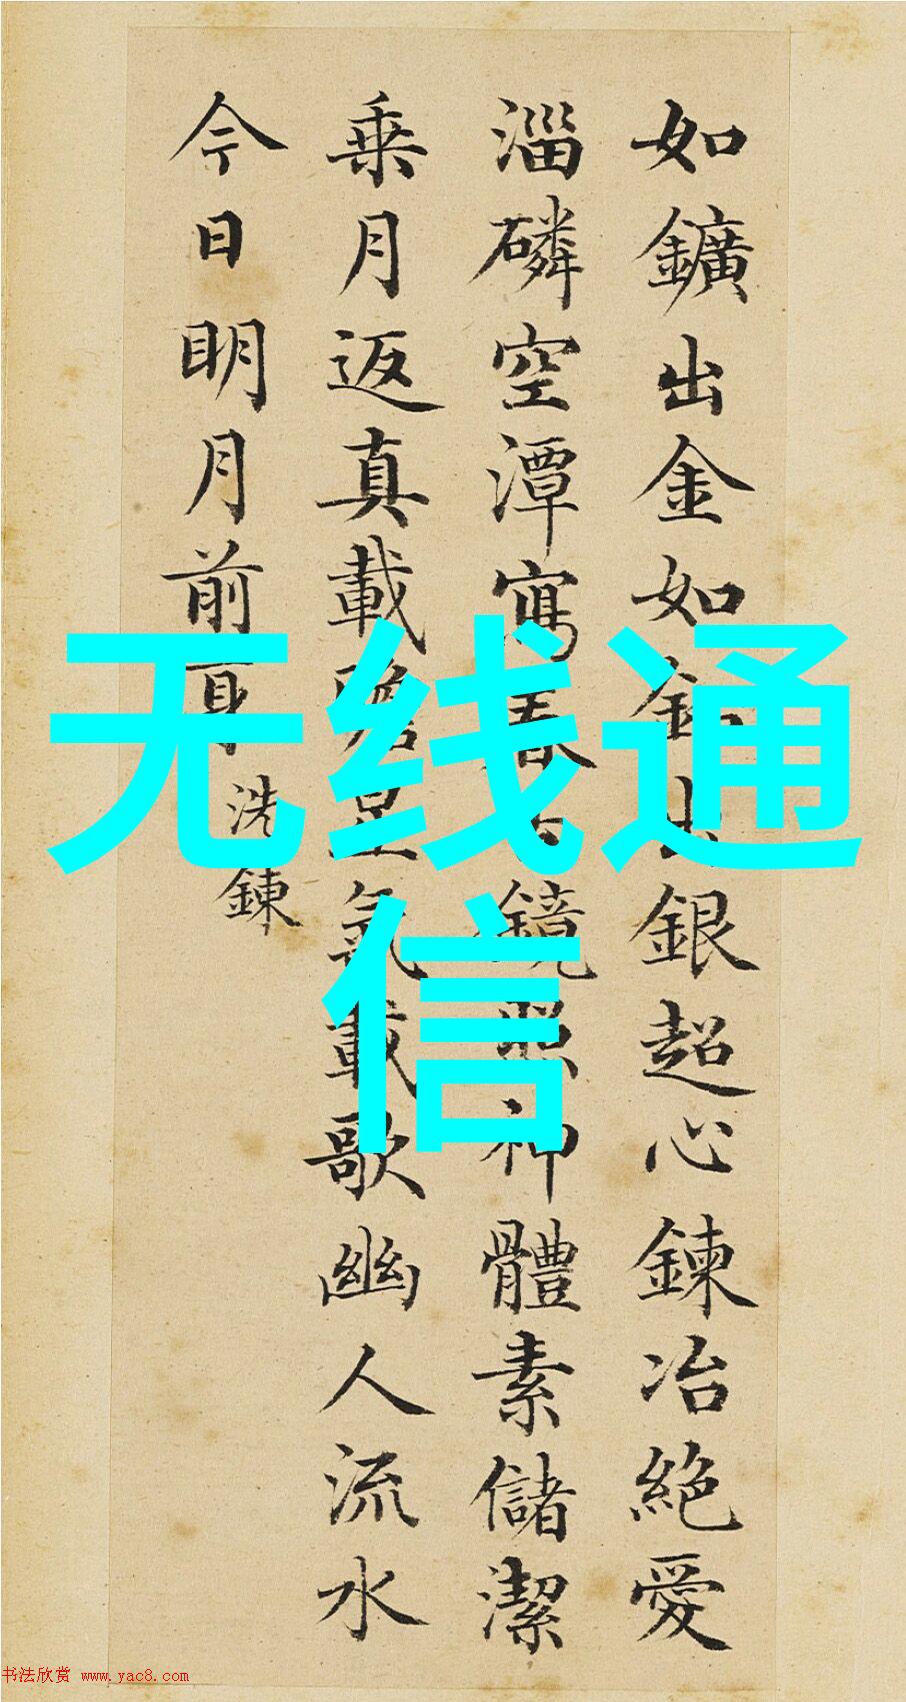 如鑛出金如鉛出銀超心鍊冶絶愛
淄磷空潭寫春古鏡照神體素儲潔
乗月返真載瞻星氣載歌幽人流水
今日明月前身
洗鍊
无线通
信
书法欣赏 www.yac8.com